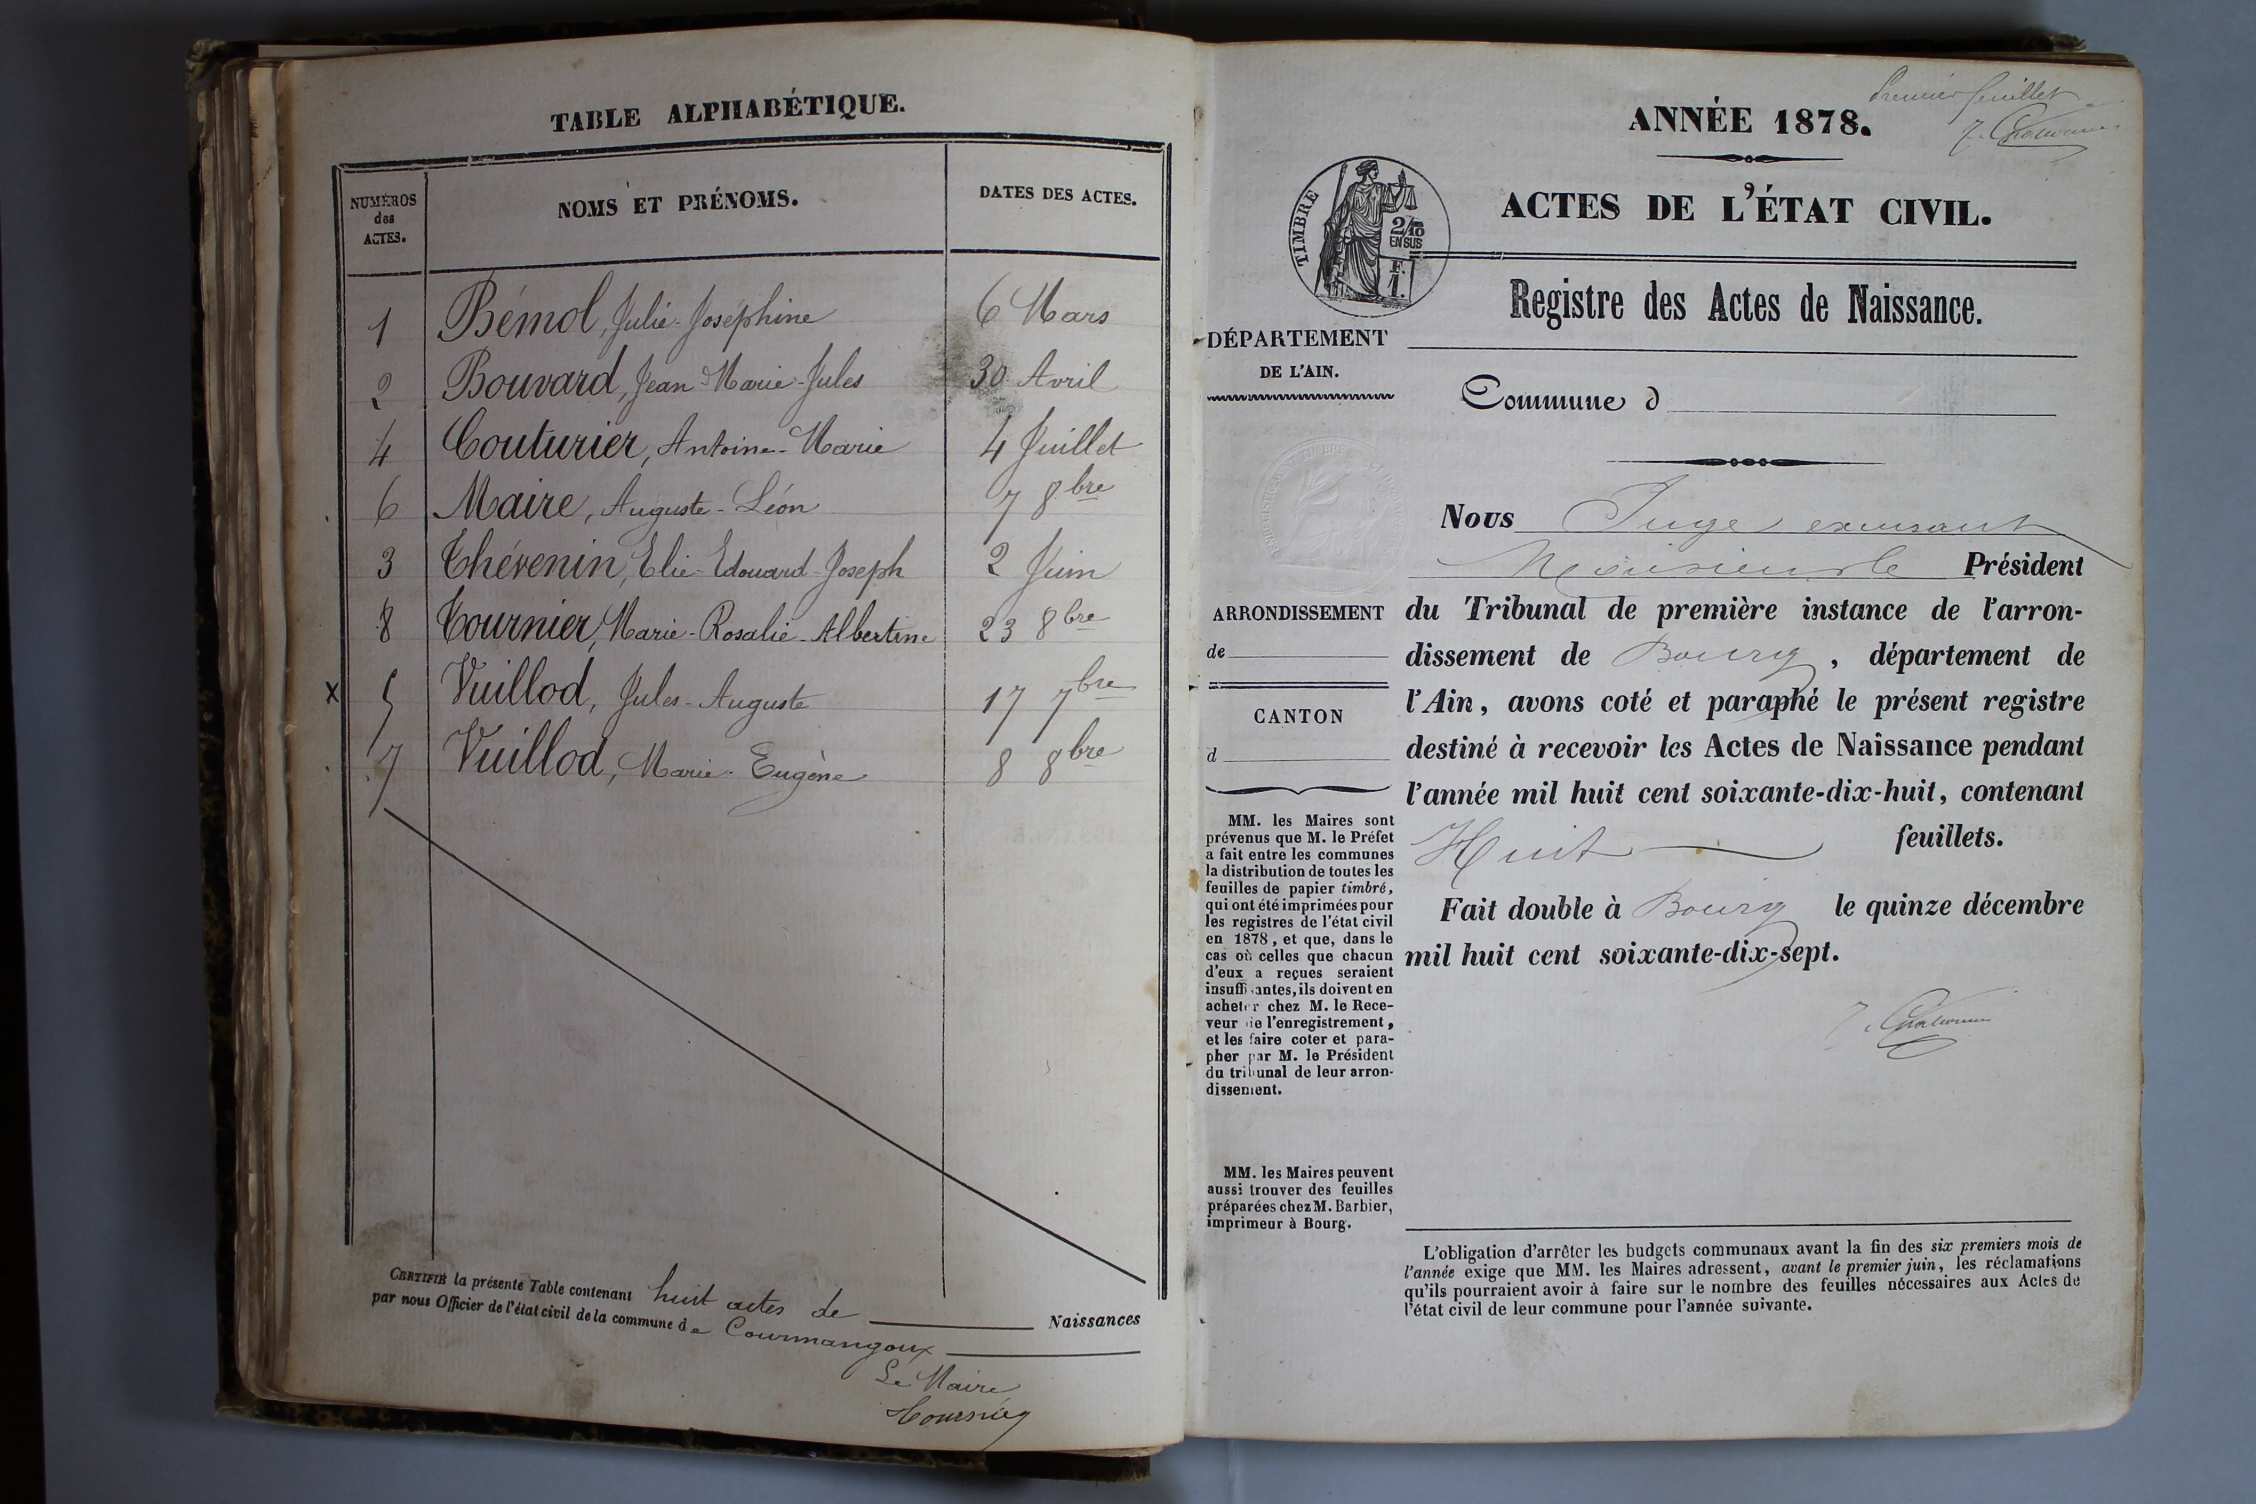 TABLE ALPHABÉTIQUE.
NUMÉROS
des
ACTES.
NOMS ET PRÉNOMS.
DATES DES ACTES.
1 Bémol, Julie-Joséphine 6 Mars
2 Bouvard, Jean-Marie-Jules 30 Avril
4 Couturier, Antoine-Marie 4 Juillet
6 Maire, Auguste-Léon 7 8bre
3 Thévenin, Elie-Edouard-Joseph 2 Juin
8 Tournier, Marie-Rosalie-Albertine 23 8bre
x 5 Vuillod, Jules-Auguste 17 7bre
7 Vuillod, Marie-Eugène 8 8bre
CERTIFIÉ la présente Table contenant huit actes de Naissances
par nous Officier de l'état civil de la commune de Courmangoux
Le Maire
Premier feuillet
ANNÉE 1878.
ACTES DE L'ÉTAT CIVIL.
TIMBRE
2/10
EN SUS
F.
1.
Registre des Actes de Naissance.
DÉPARTEMENT
DE L'AIN.
Commune d
Nous Juge
Monsieur le Président
ARRONDISSEMENT
de
CANTON
d
du Tribunal de première instance de l'arron-
dissement de Bourg, département de
l'Ain, avons coté et paraphé le présent registre
destiné à recevoir les Actes de Naissance pendant
l'année mil huit cent soixante-dix-huit, contenant
Huit feuillets.
Fait double à Bourg le quinze décembre
mil huit cent soixante-dix-sept.
MM. les Maires sont
prévenus que M. le Préfet
a fait entre les communes
la distribution de toutes les
feuilles de papier timbré,
qui ont été imprimées pour
les registres de l'état civil
en 1878, et que, dans le
cas où celles que chacun
d'eux a reçues seraient
insuffisantes, ils doivent en
acheter chez M. le Rece-
veur de l'enregistrement,
et les faire coter et para-
pher par M. le Président
du tribunal de leur arron-
dissement.
MM. les Maires peuvent
aussi trouver des feuilles
préparées chez M. Barbier,
imprimeur à Bourg.
L'obligation d'arrêter les budgets communaux avant la fin des six premiers mois de
l'année exige que MM. les Maires adressent, avant le premier juin, les réclamations
qu'ils pourraient avoir à faire sur le nombre des feuilles nécessaires aux Actes de
l'état civil de leur commune pour l'année suivante.